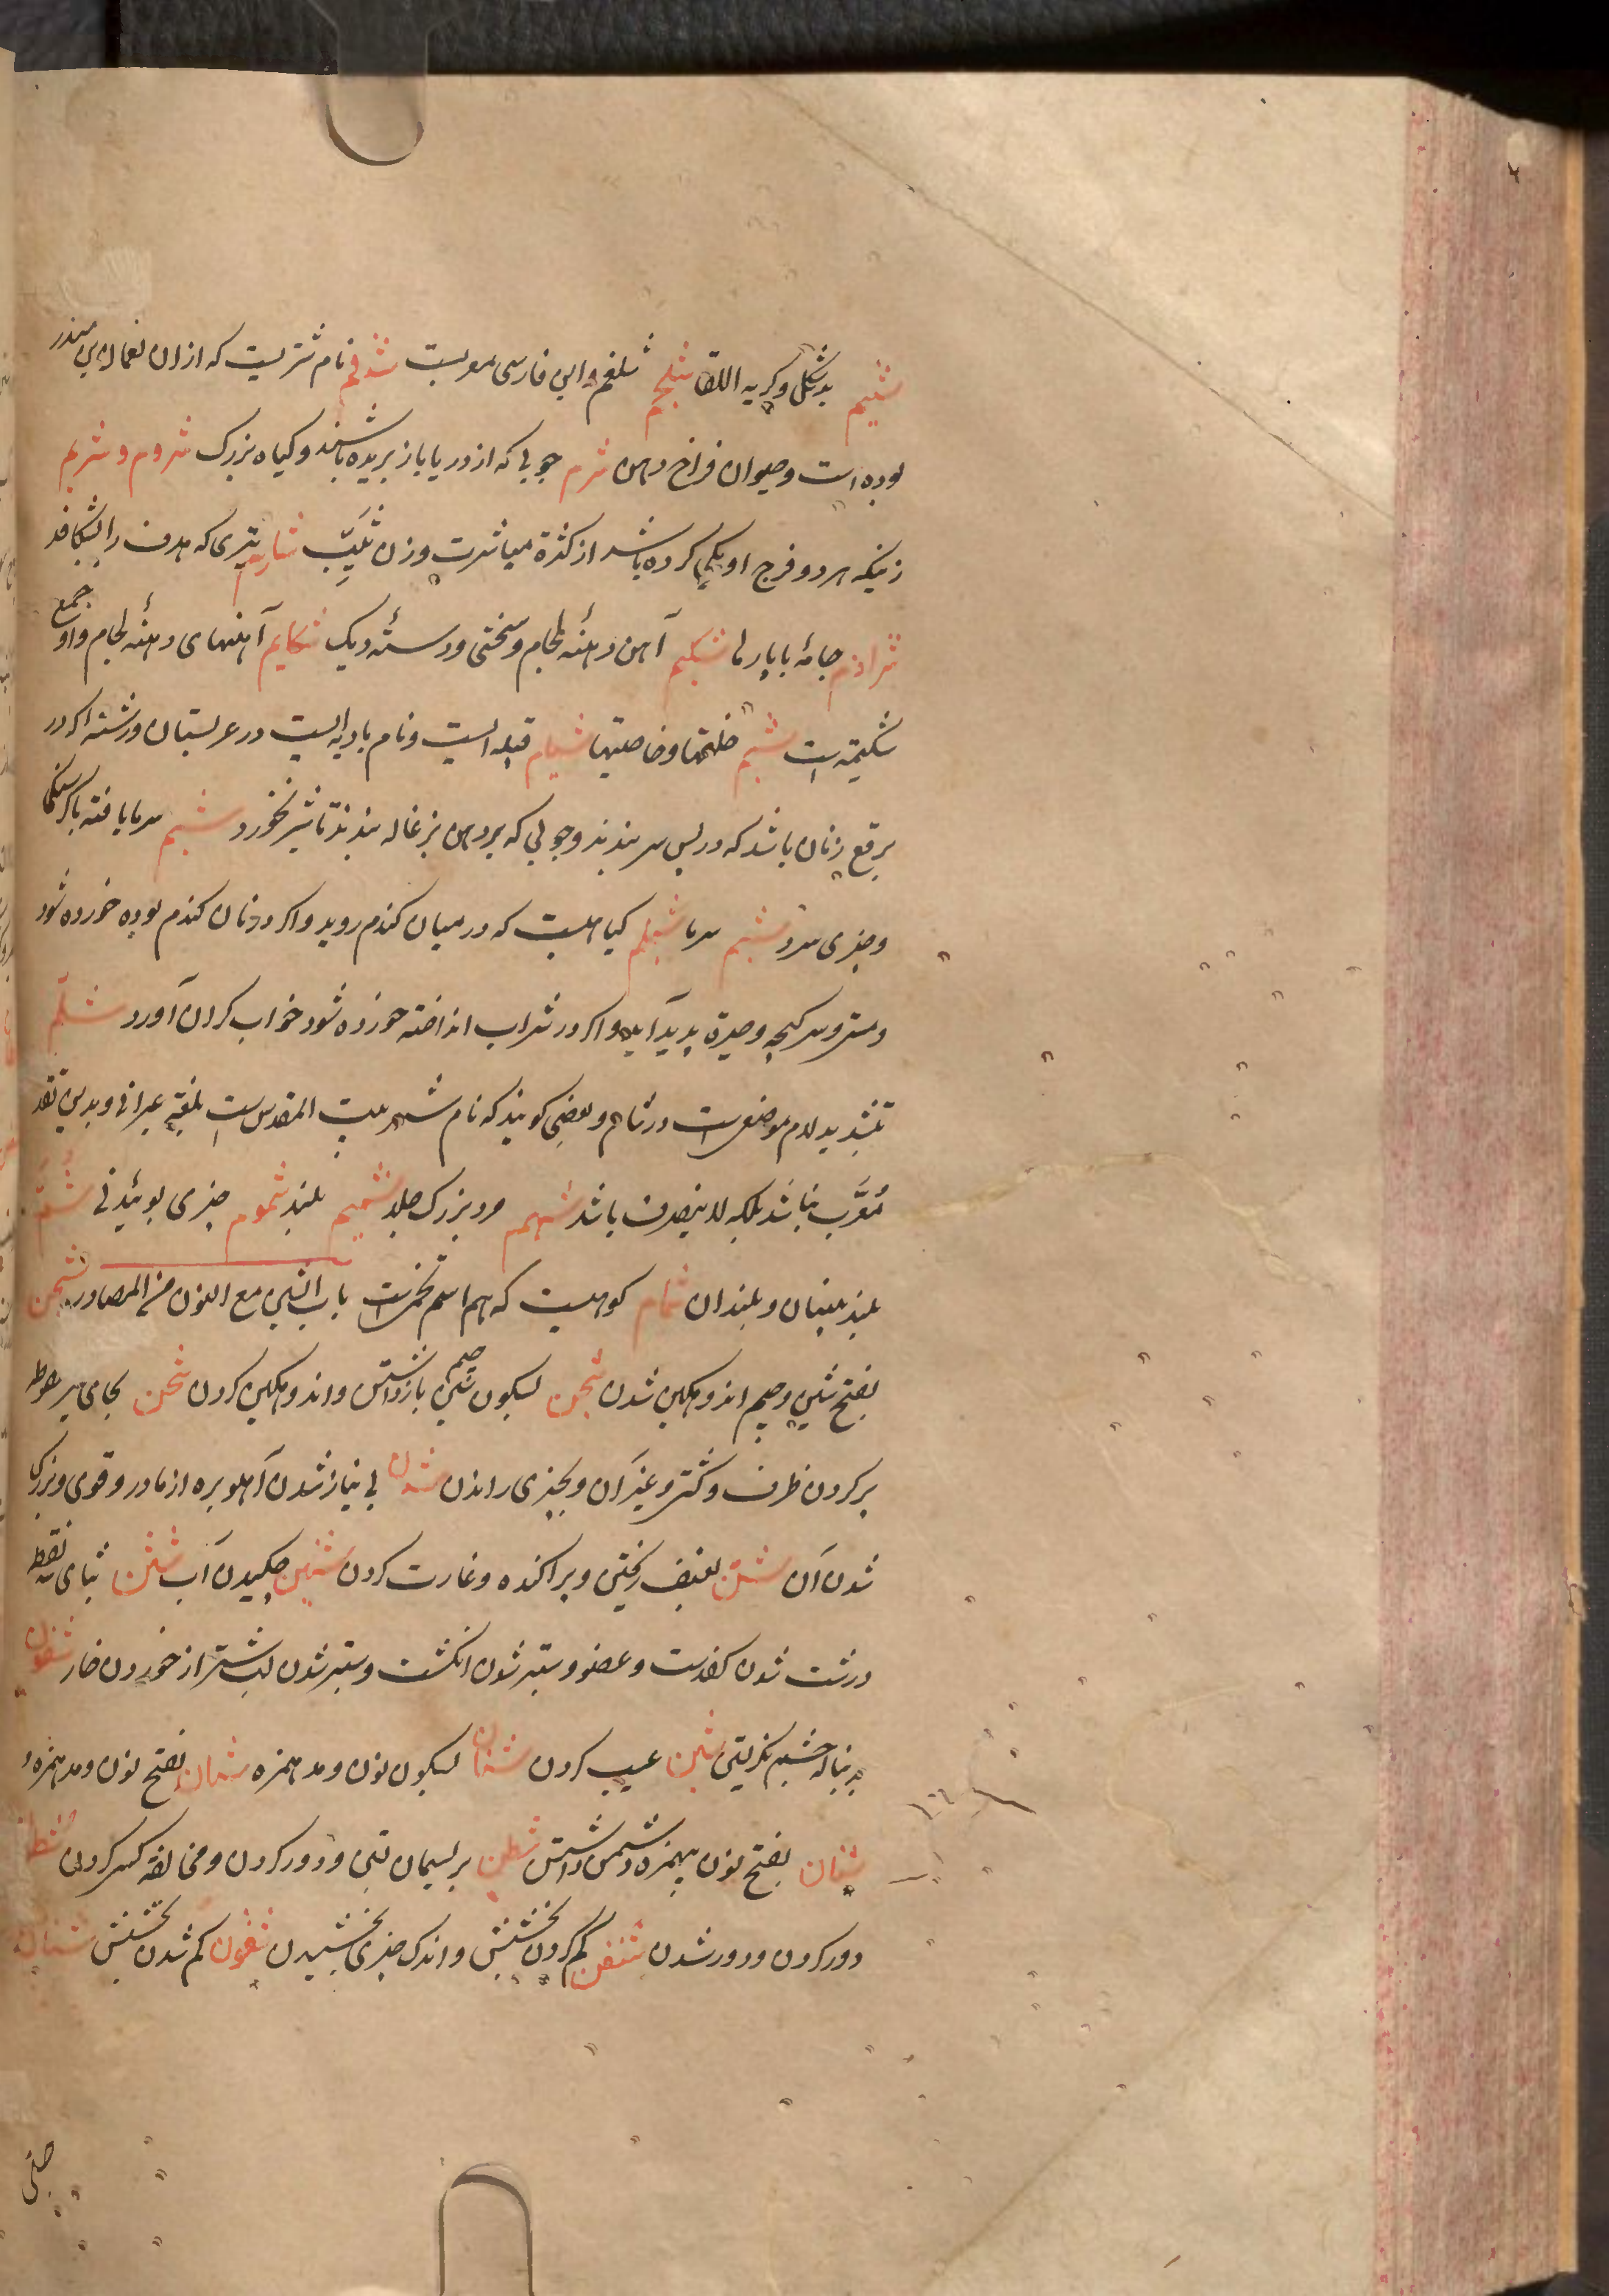 شتیم بدشکل و کریه اللقا شلجم شلغم و این فارسی معربست شدقم نام شتریست که ازان نعمان بن منذر
بوده است و حیوان فراخ دهن شرم جویی که از دریا باز بریده باشند و کیاه بزرک شروم و شریم
زنیکه هر دو فرج او یکی کرده باشد از کثرة مباشرت و زن ثیّب شارم تیری که هدف را بشکافد
شراذم جامهٔ پاپارها شکیم آهن دهنهٔ لجام و سختی و دستهٔ دیک شکایم آهنهای دهنهٔ لجام و او جمع
شکیمه است شیم خلقتها و خاصیتها شبام قبیله ایست و نام بادیه ایست در عربستان و رشته که در
برقع زنان باشد که در پس سر بندند و چوبی که بر دهن بزغاله بندند تا شیر نخورد شبم سرما یافته باکرسنکی
و چیزی سرد شبم سرما شیلم کیاهیست که در میان کندم روید و اکر در نان کندم بوده خورده شود
و مستی و سرکیجه و حیرة پدید آید و اکر در شراب انداخته خورده شود خواب کران آورد شلّم
بتشدید لام موضعیست در شام و بعضی کویند که نام شهر بیت المقدس است بلغة عبرانی و بدین تقدیر
مُعَرَّب نباشد بلکه لا ینصرف باشد شهم مرد بزرک جلد شمیم بلند شموم چیزی بوئیدنی شُمّ
بلند بینیان و بلندان شمام کوهیست که هم اسم تخمست باب الشین مع النون من المصادر شجن
بفتح شین و جیم اندوهکین شدن شجن بسکون جیم بازداشتن و اندوهکین کردن شحن بحای بی نقطه
پر کردن ظرف و کشتی و غیر آن و بچیزی راندن شدن بی نیاز شدن آهو بره از مادر و قوی و بزرک
شدن آن شن بعنف ریختن و پراکنده و غارت کردن شنین چکیدن آب شثن بثای سه نقطه
درشت شدن کف دست و عضو و ستبر شدن انکشت و ستبر شدن لب شتر از خوردن خار شفون
بدنباله چشم نکریستن شین عیب کردن شنآن بسکون نون و مد همزه شنآن بفتح نون و مد همزه و
شنان بفتح نون بیهمزه دشمن داشتن شطن بریسمان بستن و دور کردن و مخالفة کسی کردن
دور کردن و دور شدن شفن کم کردن بخشش و اندک چیزی بخشیدن شفون کم شدن بخشش